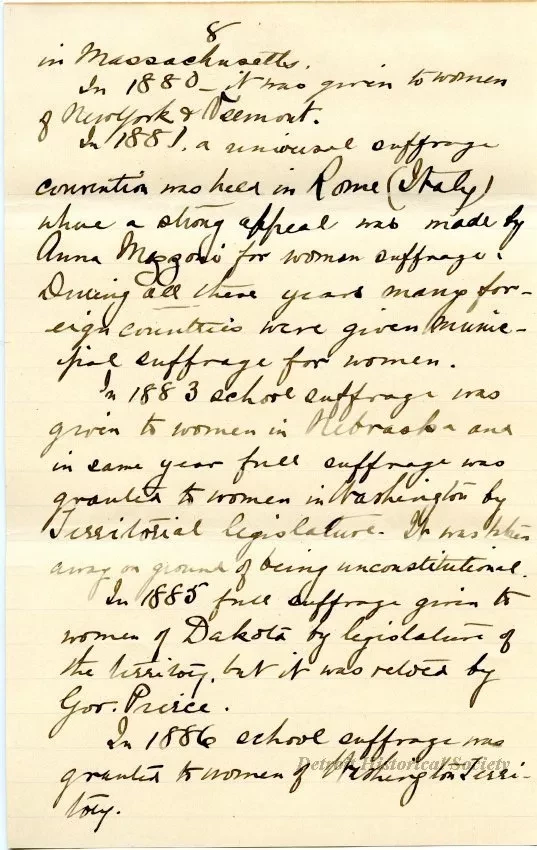 8
in Massachusetts.
In 1880 - it was given to women
of New York & Vermont.
In 1881, a universal suffrage
convention was held in Rome (Italy)
where a strong appeal was made by
Anna Mozzoni for woman suffrage.
During all these years many for-
eign countries were given munic-
ipal suffrage for women.
In 1883 school suffrage was
given to women in Nebraska and
in same year full suffrage was
granted to women in Washington by
Territorial legislature. It was taken
away on ground of being unconstitutional.
In 1885 full suffrage given to
women of Dakota by legislature of
the territory, but it was vetoed by
Gov. Pierce.
In 1886 school suffrage was
granted to women of Washington Terri-
tory.
Detroit Historical Society